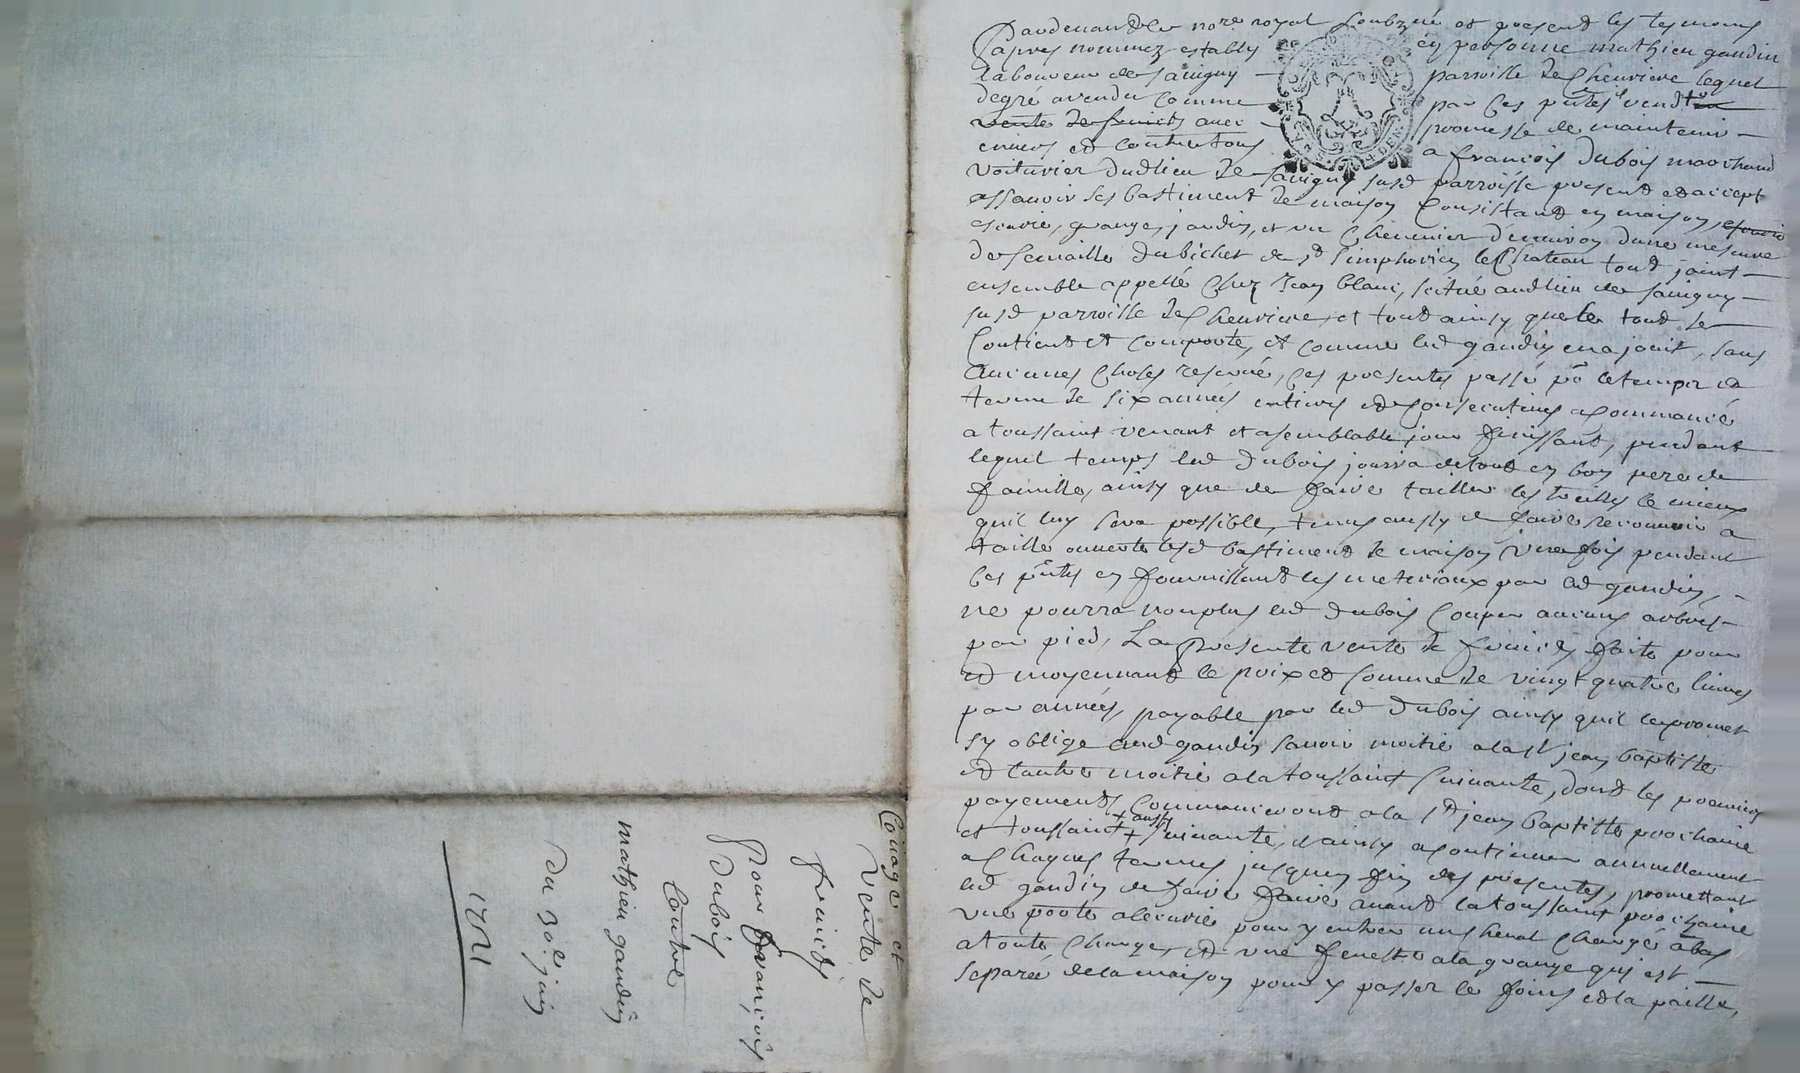 Pardevant le no.re royal soubzné et present les tesmoins
Capres nommez estably en personne mathieu gaudin
laboureur de savigny parroisse de Chevriere lequel
degré a vendu comme par ces pntes vend
vente de fruicts avec promesse de maintenir
envers et contre tous a francois dubois marchand
voiturier dudlieu de savigny susd parroisse present et accept
assavoir ses bastiment de maison Consistant en maison, escurie
escurie, grange, jardin, et un Chenevier denviron dune mesure
de semaille du bichet de st Simphorien le Chateau tout joint
ensemble appellé Chez Jean blanc, scitué audlieu de savigny
susd parroisse de Chevriere, et tout ainsy que le tout se
Contient et comporte, et comme led gaudin en a jouit, sans
Aucunes Choses reservé, Ces presentes passé pr le temps et
terme de six années entieres et Consecutives a Commancé
a toussaint venant et a semblable jour finissant, pendant
lequel temps led dubois jouira de tout en bon pere de
famille, ainsy que de faire tailler les treilles le mieux
quil luy sera possible, tenu aussy de faire recouvrir a
taille ouverte lesd bastiment de maison une fois pendant
Ces pntes en fournissant les materiaux par led gaudin,
ne pourra non plus led dubois Couper aucuns arbres
par pied, La presente vente de fruicts faite pour
et moyennant le prix et somme de vingt quatre livres
par années, payable par led dubois ainsy quil le promet
sy oblige aud gaudin savoir moitié a la st jean baptiste
et lautre moitié a la toussaint suivante, dont les premiers
payements Commanceront a la st jean baptiste prochaine
+ aussy
et toussaint + suivante, et ainsy a Continuer annuellement
a Chaques termes jusques fin des presentes, promettant
led gaudin de faire faire avant la toussaint prochaine
une porte a lecurie pour y entrer un cheval Chargé a bas
a toute Charge, et une fenestre a la grange qui est
separée de la maison pour y passer le foins et la paille,
Couage et
Vente de
fruicts
Pour francois
Dubois
Contre
mathieu gaudin
Du 30e juin
1721